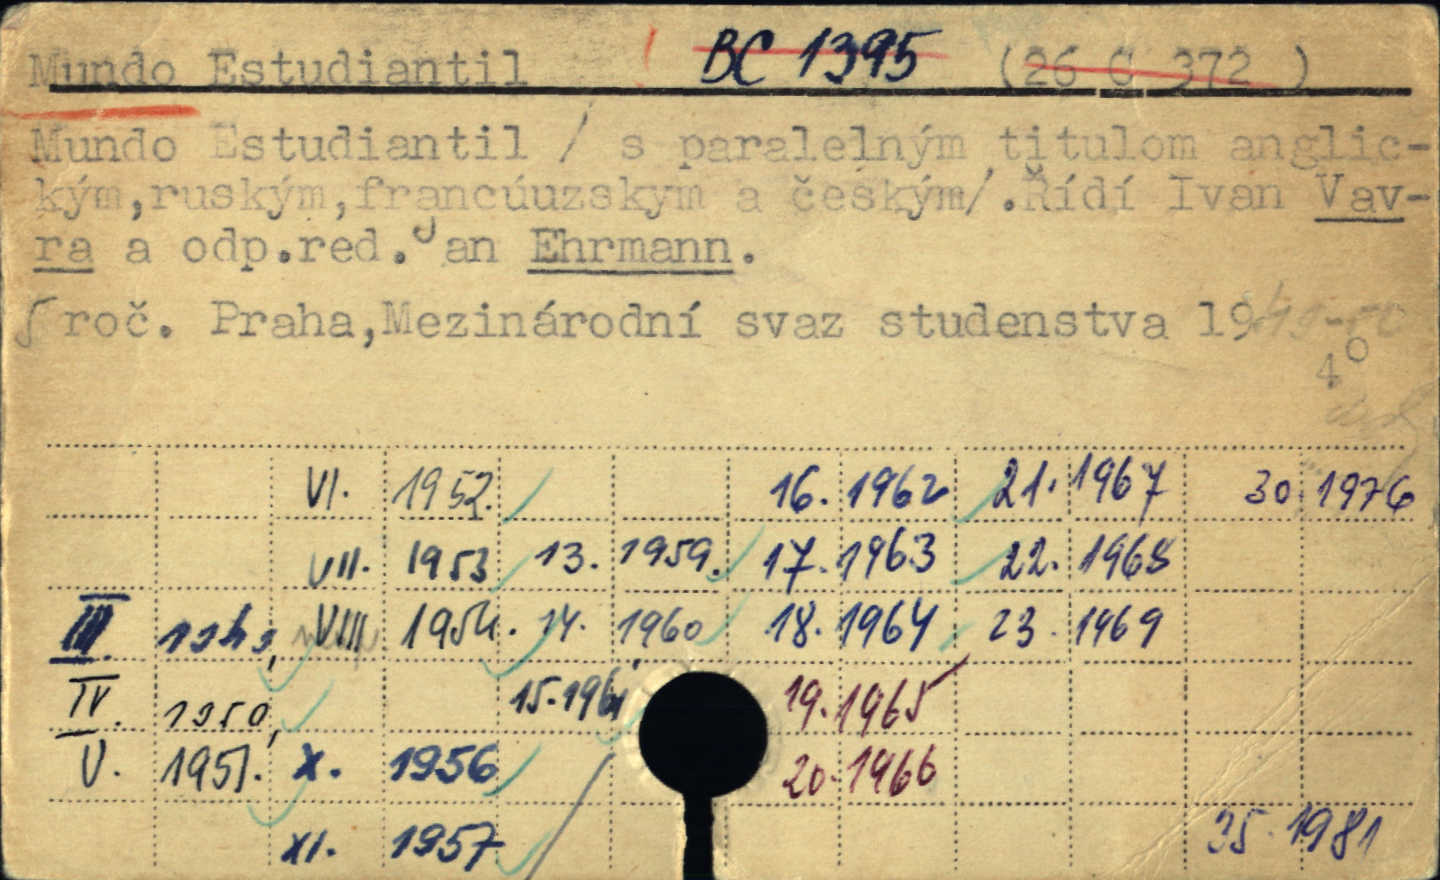 Mundo Estudiantil BC 1395 (26 G 372 )
Mundo Estudiantil / s paralelným titulom anglic-
kým,ruským,francúuzskym a českým/.Řídí Ivan Vav-
ra a odp.red. Jan Ehrmann.
5 roč. Praha,Mezinárodní svaz studenstva 1949-50
4°
VI. 1952. 16. 1962 21. 1967 30. 1976
VII. 1953 13. 1959. 17. 1963 22. 1968
III. 1949, VIII. 1954. 14. 1960 18. 1964 23. 1969
IV. 1950, 15. 1961 19. 1965
V. 1951. X. 1956 20. 1966
XI. 1957 35. 1981